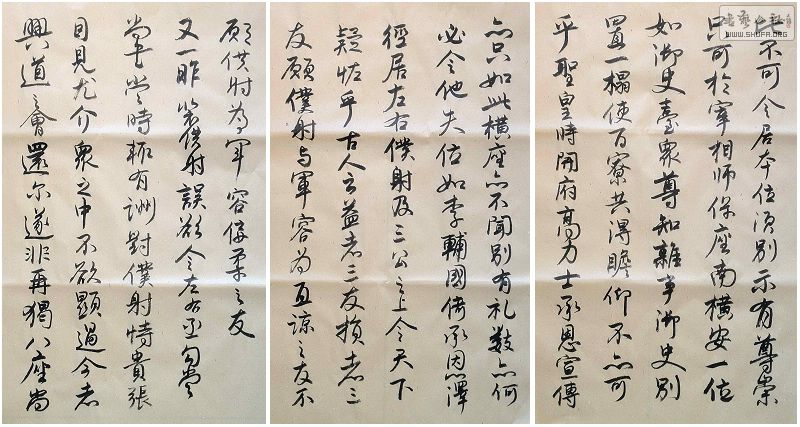 不可令居本位須別示有尊崇
只可於宰相師保座南橫安一位
如御史臺衆尊知雜事御史別
置一榻使百寮共得瞻仰不亦可
乎聖皇時開府高力士承恩宣傳
亦只如此橫座亦不聞別有礼数亦何
必令他失位如李輔國倚承恩澤
徑居左右僕射及三公之上令天下
疑怪乎古人云益者三友損者三
友願僕射与軍容為直諒之友不
願僕射為軍容佞柔之友
又一昨裴僕射誤欲令左右丞勾當
尚書當時輒有酬對僕射恃貴張
目見尤介衆之中不欲顯過今者
興道之會還尔遂非再猲八座尚
WWW.SHUFA.ORG